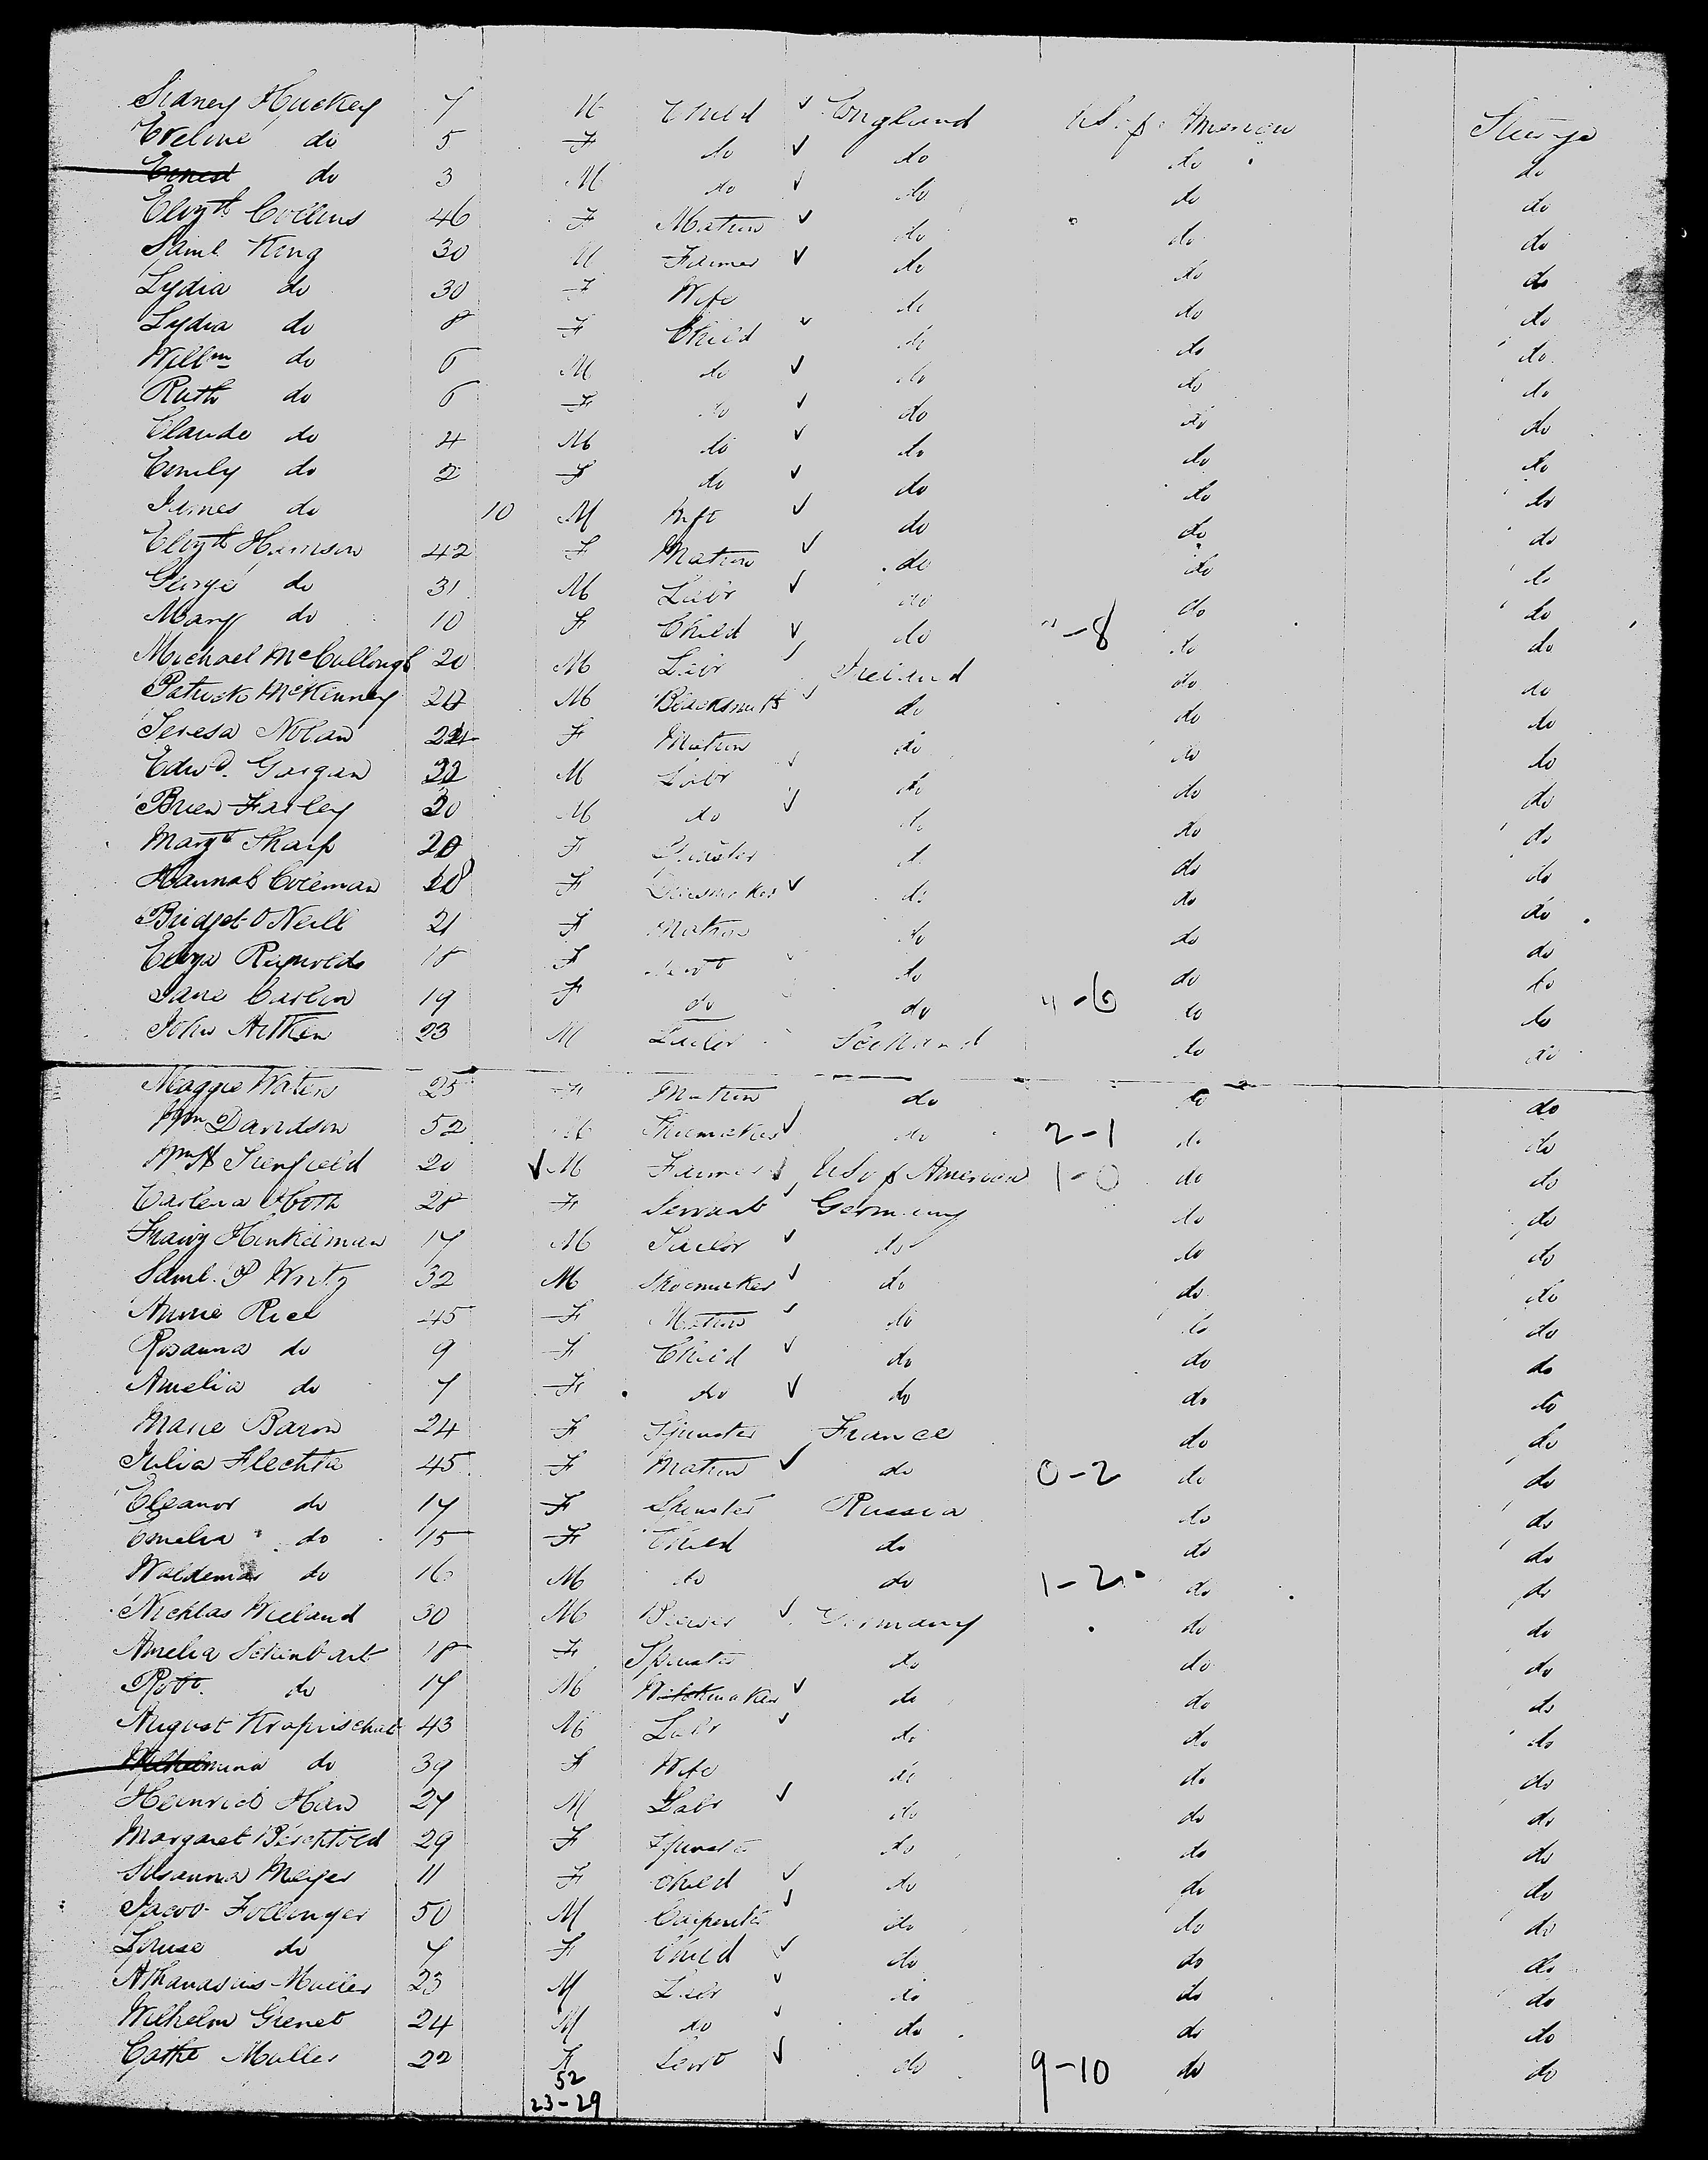 Sidney Huckey 7 M Child England U.S. of America Steerage
Eveline do 5 F do do do do
Ernest do 3 M do do do do
Elizth Collins 46 F Matron do do do
Saml King 30 M Farmer do do do
Lydia do 30 F Wife do do do
Lydia do 8 F Child do do do
Willm do 6 M do do do do
Ruth do 6 F do do do do
Claude do 4 M do do do do
Emily do 2 F do do do do
James do 10 M Inft do do do
Elizth Harrison 42 F Matron do do do
George do 31 M Labr do do do
Mary do 10 F Child do -8 do do
Michael McCullough 20 M Labr Ireland do do
Patrick McKenney 20 M Blacksmith do do do
Teresa Nolan 24 F Matron do do do
Edwd. Gargan 32 M Labr do do do
Brien Farley 20 M do do do do
Margt Sharp 20 F Spinster do do do
Hannah Coleman 18 F Dressmaker do do do
Bridget O'Neill 21 F Matron do do do
Eliza Reynolds 18 F Servt do do do
Jane Carlin 19 F do do 4-6 do do
John Aitken 23 M Tailor Scotland do do
Maggie Waters 25 F Matron do do do
Wm Davidson 52 M Shoemaker do 2-1 do do
Wm H Tienfield 20 M Farmer U.S. of America 1-0 do do
Carlena Hoth 28 F Servant Germany do do
Franz Hinkelman 17 M Tailor do do do
Saml. P Wntz 32 M Shoemaker do do do
Annie Riel 45 F Matron do do do
Rosanna do 9 F Child do do do
Amelia do 7 F do do do do
Marie Baron 24 F Spinster France do do
Julia Flechta 45 F Matron do 0-2 do do
Eleanor do 17 F Spinster Russia do do
Emelia do 15 F Child do do do
Waldemar do 16 M do do 1-2 do do
Nichlas Wieland 30 M Brewer Germany do do
Amelia Schinbart 18 F Spinster do do do
Robt. do 17 M Watchmaker do do do
August Kropnischat 43 M Labr do do do
Wilhelmina do 39 F Wife do do do
Heinrich Han 27 M Labr do do do
Margaret Bischtold 29 F Spinster do do do
Susanna Meyer 11 F Child do do do
Jacob Follinger 50 M Carpenter do do do
Louise do 7 F Child do do do
Athanasius Muller 23 M Labr do do do
Wilhelm Grenet 24 M do do do do
Cathe Muller 22 F Servt do 9-10 do do
52
23-29